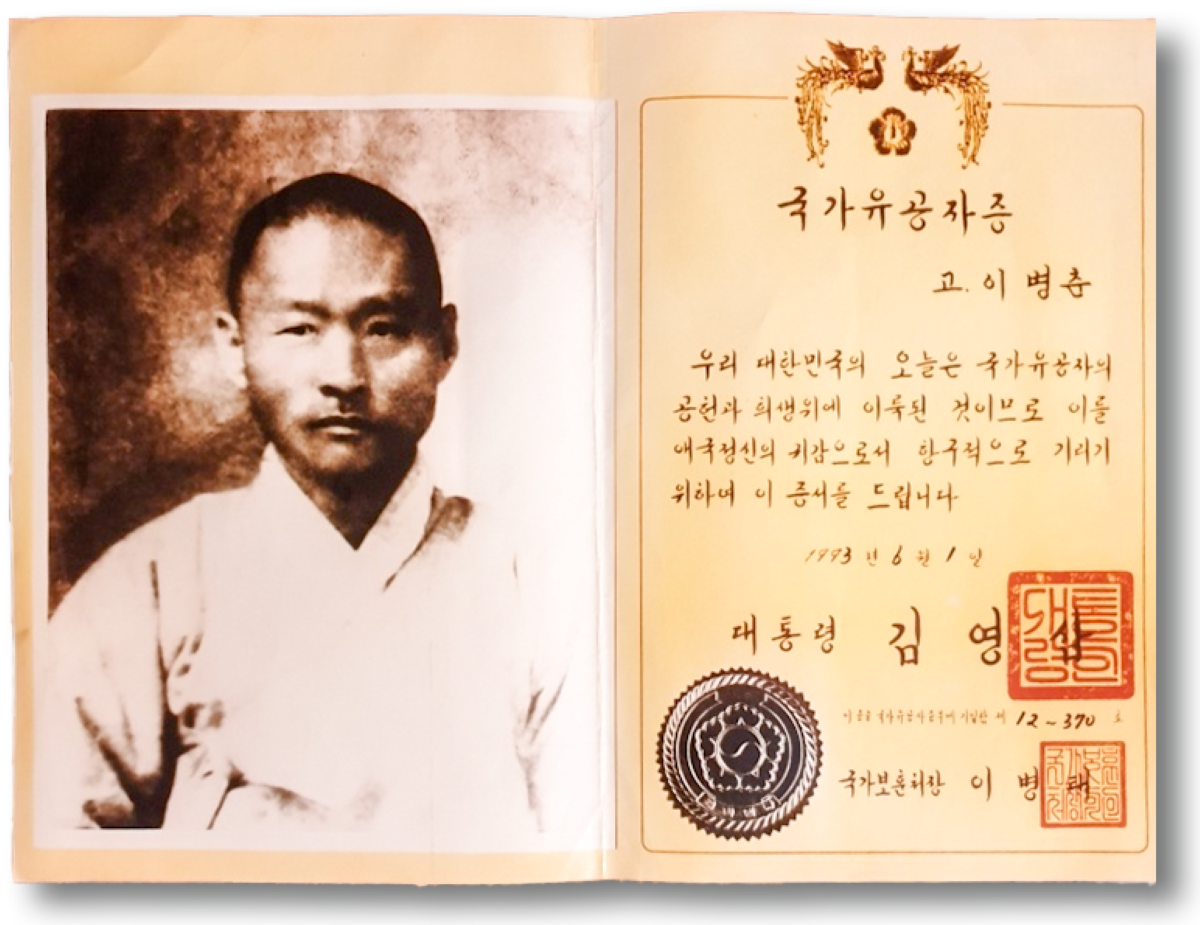 국가유공자증
고. 이 병 춘
우리 대한민국의 오늘은 국가유공자의
공헌과 희생위에 이룩된 것이므로 이를
애국정신의 귀감으로서 항구적으로 기리기
위하여 이 증서를 드립니다
1993 년 6 월 1 일
대통령 김 영 삼
대통령인
이 증을 국가유공자증부에 기입함 제 12~370 호
국가보훈처장 이 병 태